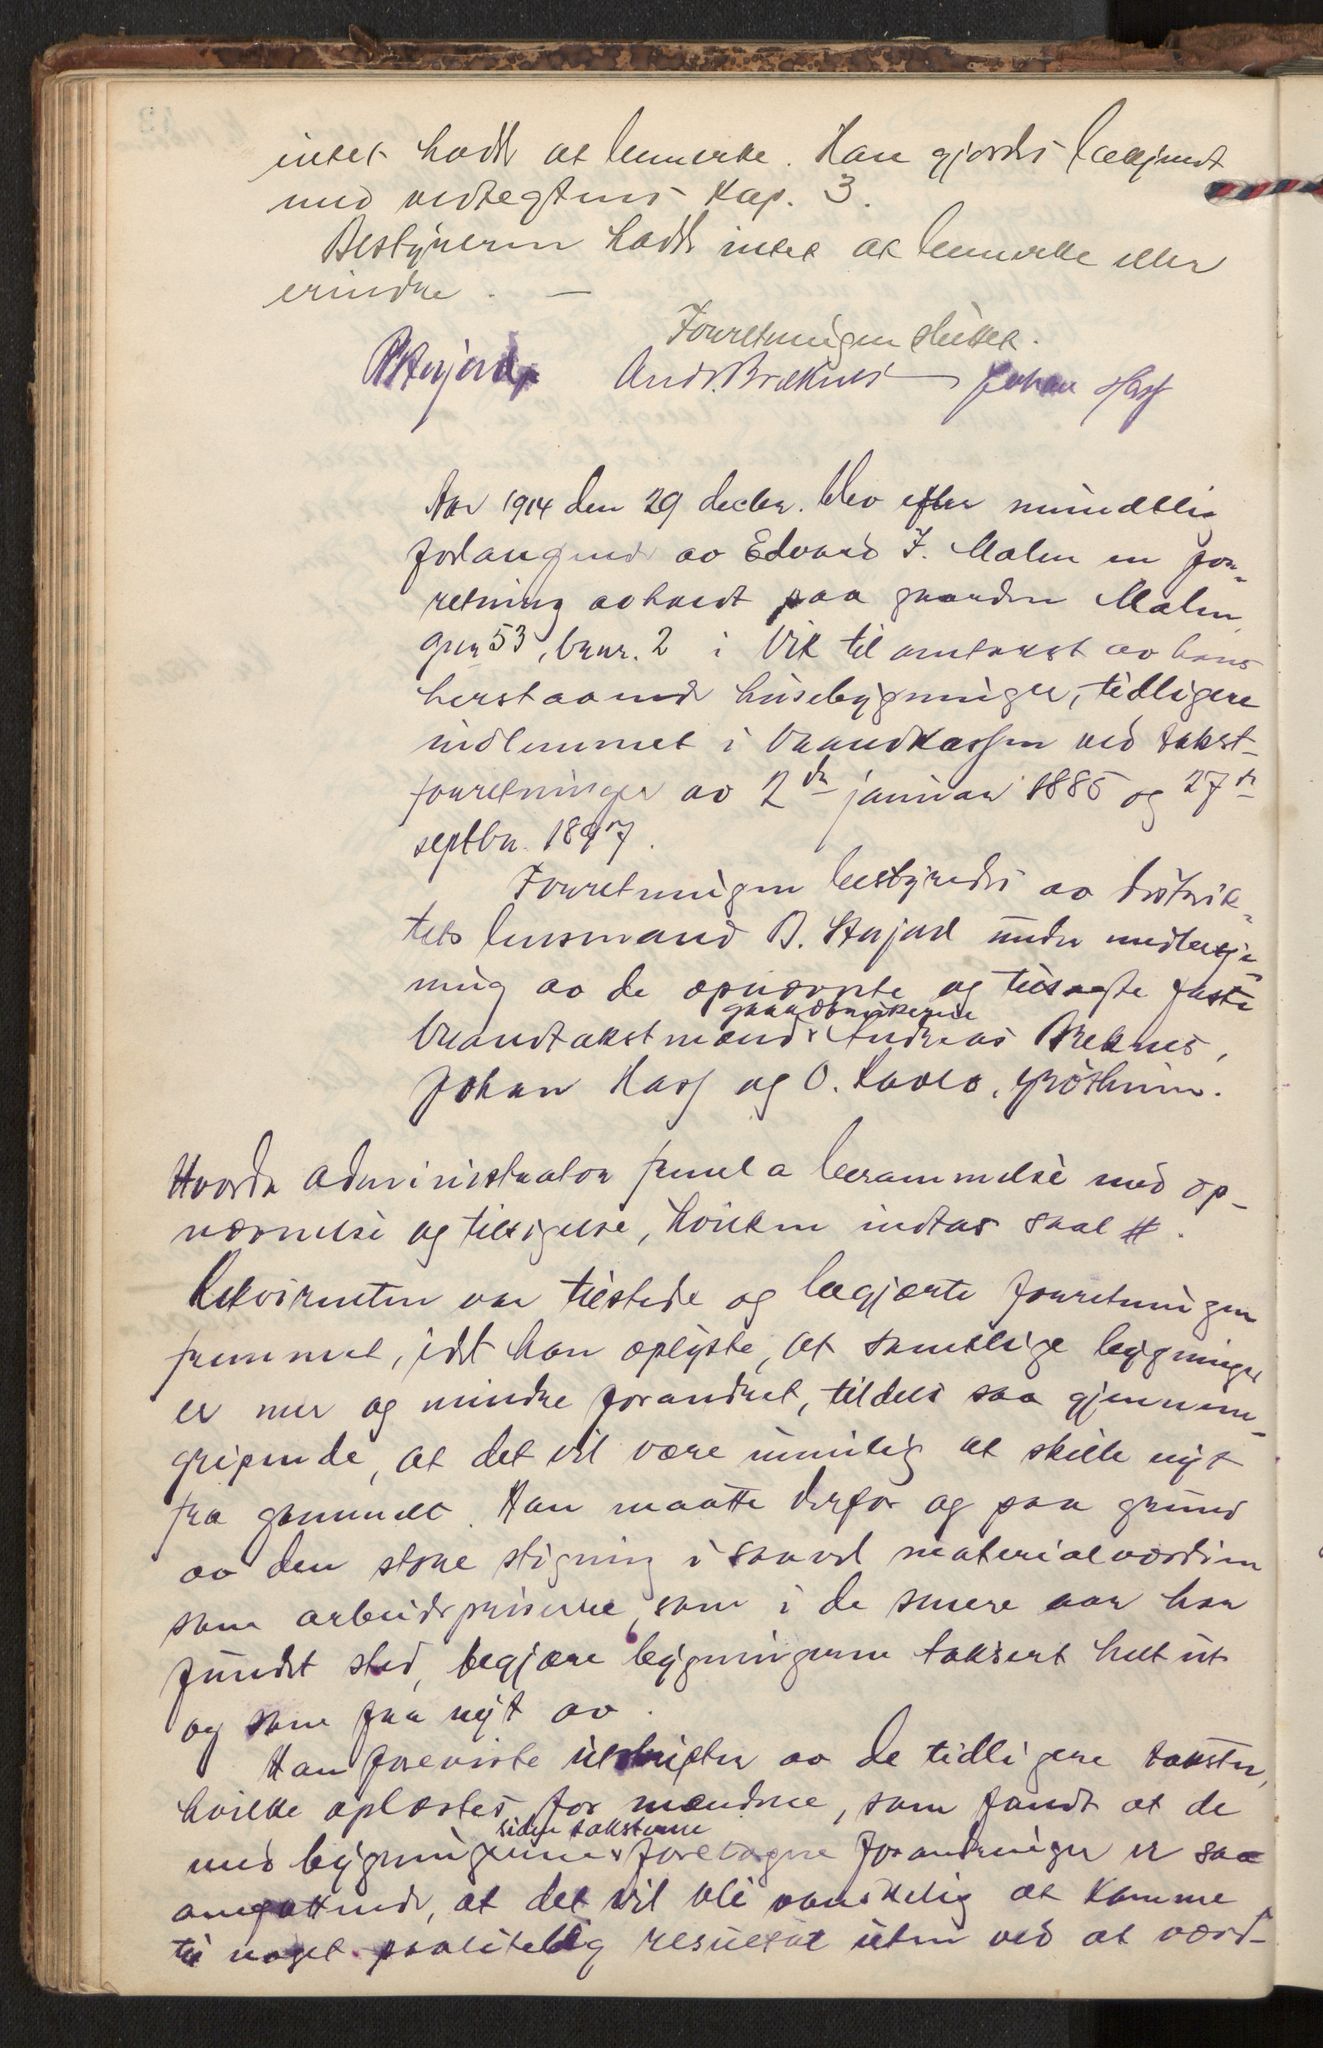 intet hadde at bemerke. Han gjordes bekjendt
med vedtegtens Kap. 3.
Bestyreren hadde intet at bemerke eller
erindre. —
Forretningen sluttet.
And. Breknes Johan Hasf
Aar 1914 den 29 decbr. blev efter mundtlig
forlangende av Edvard J. Malm en for-
retning avholdt paa gaarden Malm,
gnr 53, brnr. 2 i Vik til omtakst av hans
herstaaende husebygninger, tidligere
indlemmet i Brandkassen ved takst-
forretninger av 2den januar 1885 og 27de
septbr. 1897.
Forretningen bestyredes av distrik-
tets lensmand under medbetje-
ning av de opnævnte og tilsagte faste
gaardbrukerne
brandtakstmænd Andreas Breknes,
Johan Hasf og O.
Hvorda administrator fremla berammelse med op-
nævnelse og tilsigelse, hvilken indtas saal #.
Rekvirenten var tilstede og begjærte forretningen
fremmet, idet han oplyste, at samtlige bygninger
er mer og mindre forandret, tildels saa gjennem-
gripende, at det vil være umulig at skille nyt
fra gammelt. Han maatte derfor og paa grund
av den store stigning i saavel materialværdien
som arbeidspriserne, som i de senere aar har
fundet sted, begjære bygningerne taksert helt ut
og som fra nyt av.
Han foreviste utskrifter av de tidligere takster,
hvilke oplæstes for mændene, som fandt at de
siden taksterne
med bygningerne foretagne forandringer er saa
omfattende, at det vil bli vanskelig at komme
til noget paalitelig resultat uten ved at værd-